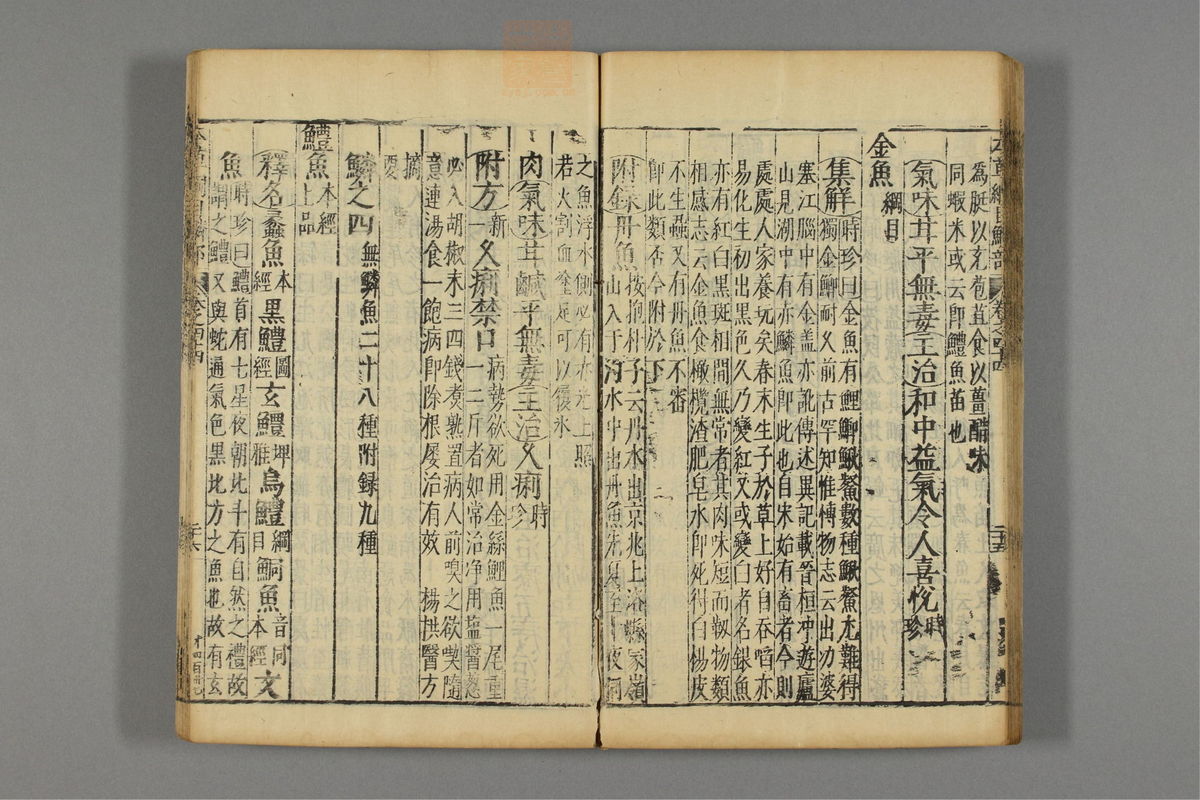 爲脡以充苞苴食以薑醋味
同蝦米或云卽鱧魚苗也
氣味甘平無毒主治和中益氣令人喜悅時珍
金魚綱目
集解時珍曰金魚有鯉鯽鰍鱉數種鰍鱉尤難得
獨金鯽耐久前古罕知惟博物志云出功婆
塞江腦中有金盖亦訛傳述異記載晉桓冲遊廬
山見湖中有赤鱗魚卽此也自宋始有畜者今則
處處人家養玩矣春末生子於草上好自吞啗亦
易化生初出黑色久乃變紅又或變白者名銀魚
亦有紅白黑斑相間無常者其肉味短而韌物類
相感志云金魚食橄欖渣肥皂水卽死得白楊皮
不生蝨又有丹魚不審
卽此類否今附於下
附錄丹魚按抱朴子云丹水出京兆上洛縣冢嶺
山入于汋水中出丹魚先夏至十夜伺
之魚浮水側必有赤光上照
若火割血塗足可以履氷
肉氣味甘鹹平無毒主治久痢時珍
附方新一久痢禁口病勢欲死用金絲鯉魚一尾重
一二斤者如常治净用鹽醬葱
必入胡椒末三四錢煮熟置病人前嗅之欲喫隨
意連湯食一飽病卽除根屢治有效 楊拱醫方
摘
要
鱗之四無鱗魚二十八種附録九種
鱧魚本經上品
釋名蠡魚本經黑鱧圖經玄鱧埤雅烏鱧綱目鮦魚音同本經文
魚時珍曰鱧首有七星夜朝北斗有自然之禮故
謂之鱧又與蛇通氣色黑北方之魚也故有玄